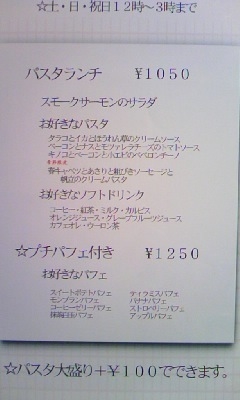 ☆土・日・祝日12時～3時まで
パスタランチ ¥1050
スモークサーモンのサラダ
お好きなパスタ
タラコとイカとほうれん草のクリームソース
ベーコンとナスとモッツァレラチーズのトマトソース
キノコとベーコンと小エビのペペロンチーノ
春キャベツとあさりと粗びきソーセージと
帆立のクリームパスタ
お好きなソフトドリンク
コーヒー・紅茶・ミルク・カルピス
オレンジジュース・グレープフルーツジュース
カフェオレ・ウーロン茶
☆プチパフェ付き ¥1250
お好きなパフェ
スイートポテトパフェ ティラミスパフェ
モンブランパフェ バナナパフェ
コーヒーゼリーパフェ ストロベリーパフェ
抹茶白玉パフェ アップルパフェ
☆パスタ大盛り＋¥100でできます。